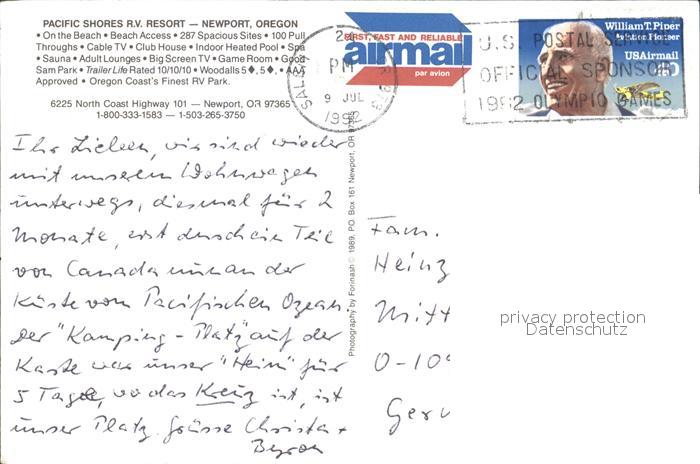 PACIFIC SHORES R.V. RESORT — NEWPORT, OREGON
• On the Beach • Beach Access • 287 Spacious Sites • 100 Pull
Throughs • Cable TV • Club House • Indoor Heated Pool • Spa
• Sauna • Adult Lounges • Big Screen TV • Game Room • Good
Sam Park • Trailer Life Rated 10/10/10 • Woodalls 5♦, 5♦, • AAA
Approved • Oregon Coast's Finest RV Park.
6225 North Coast Highway 101 — Newport, OR 97365
1-800-333-1583 — 1-503-265-3750
Ihr Lieben, wir sind wieder
mit unserem Wohnwagen
unterwegs, diesmal für 2
Monate, erst durch ein Teil
von Canada nun an der
Küste vom Pacifischen Ozean.
Der "Kamping-Platz" auf der
Karte war unser "Heim" für
5 Tage, wo das Kreuz ist, ist
unser Platz. Grüsse Christa +
Byron
Photography by Forinash © 1989, P.O. Box 161 Newport, OR
FIRST, FAST AND RELIABLE
airmail
par avion
PM
9 JUL
1992
U.S. POSTAL SERVICE
OFFICIAL SPONSOR
1992 OLYMPIC GAMES
William T. Piper
Aviation Pioneer
USAirmail
Fam.
Heinz
Mitt
O-10
Ger
privacy protection
Datenschutz